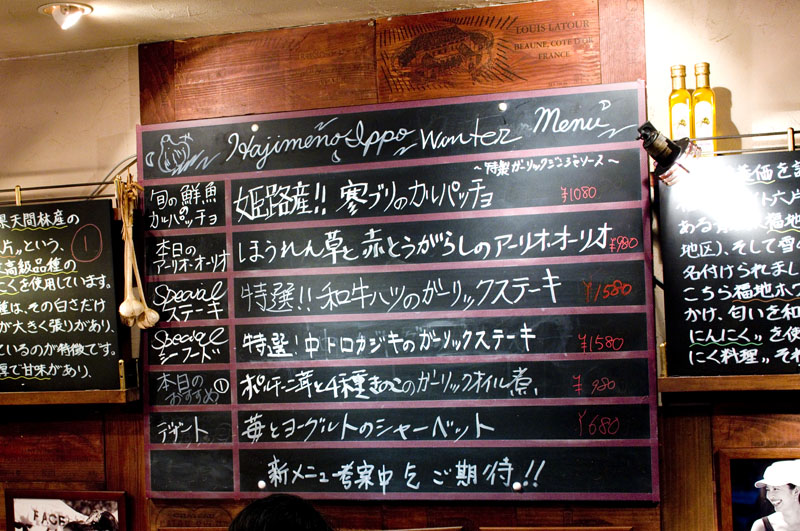 LOUIS LATOUR
BEAUNE, COTE D'OR
FRANCE
Hajimeno Ippo Winter Menu
~特製ガーリックごろごろソース~
旬の鮮魚
カルパッチョ
姫路産!! 寒ブリのカルパッチョ ¥1080
本日の
アーリオ・オーリオ
ほうれん草と赤とうがらしのアーリオ・オーリオ ¥980
Special
ステーキ
特選!! 和牛ハツのガーリックステーキ ¥1580
Special
シーフード
特選! 中トロカジキのガーリックステーキ ¥1580
本日の
おすすめ①
ポルチーニ茸と4種きのこのガーリックオイル煮 ¥980
デザート
苺とヨーグルトのシャーベット ¥680
新メニュー考案中 乞ご期待!!
果天間林産の
片"という、
①
高級品種の
くを使用しています。
種は、その白さだけ
が大きく張りがあり、
ているのが特徴です。
厚で甘味があり、
価を
六片
ある
福地
地区)、そして雪
名付けられまし
こちら福地ホワ
かけ、匂いを和
にんにく"を使
にく料理"それ